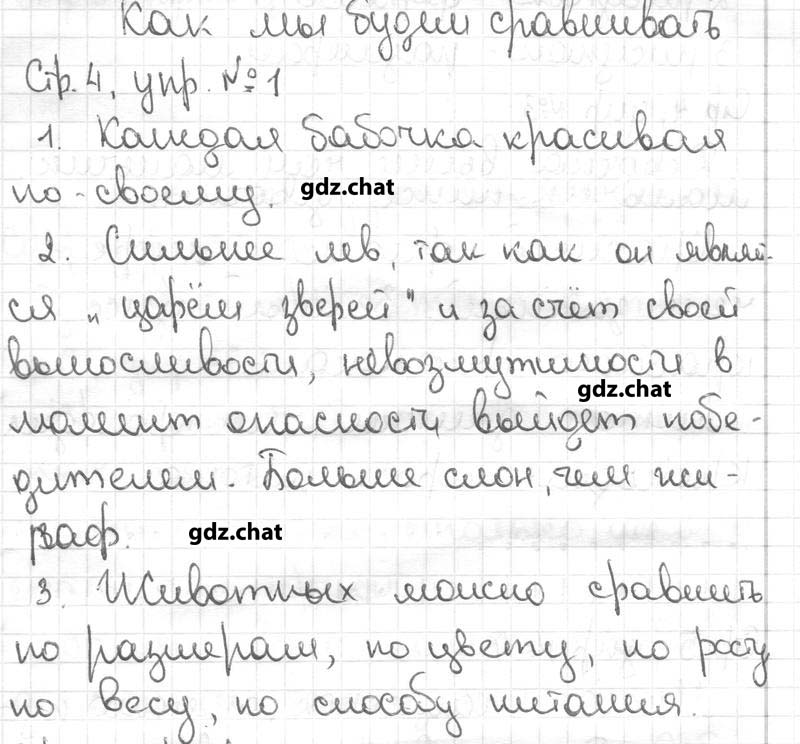 Как мы будем сравнивать
Стр. 4, упр. №1
1. Каждая бабочка красивая
по-своему. gdz.chat
2. Сильнее лев, так как он являет-
ся „царём зверей" и за счёт своей
выносливости, невозмутимости в
gdz.chat
момент опасности выйдет побе-
дителем. Больше слон, чем жи-
раф. gdz.chat
3. Животных можно сравнить
по размерам, по цвету, по росту
по весу, по способу питания.